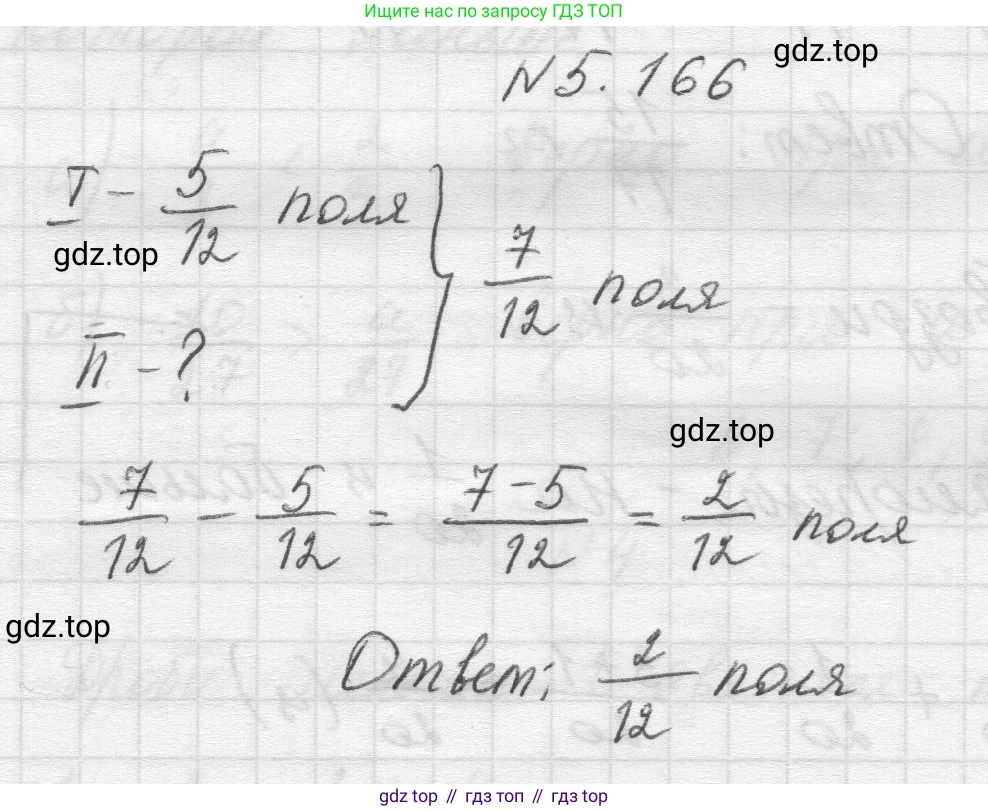 Ищите нас по запросу ГДЗ ТОП
gdz.top
N 5.166
I - 5/12 поля
gdz.top
7/12 поля
II - ?
gdz.top
7/12 - 5/12 = 7-5/12 = 2/12 поля
gdz.top
Ответ: 2/12 поля
gdz.top // гдз топ // gdz.top